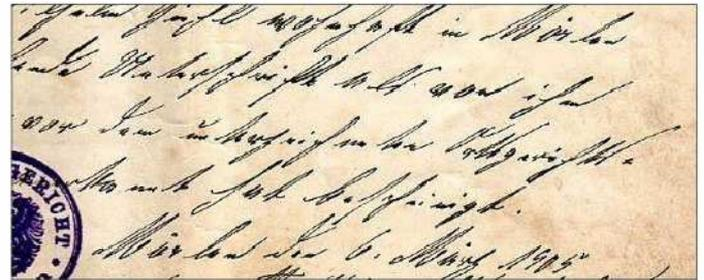 wohnhaft in Mörlen
Unterschrift als von ihm
vor dem unterzeichneten Ortsgerichts-
hat bescheinigt.
Mörlen den 6. März 1905
GERICHT